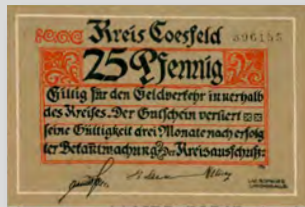 Kreis Coesfeld 396155
25 Pfennig
Gültig für den Geldverkehr innerhalb
des Kreises. Der Gutschein verliert
seine Gültigkeit drei Monate nach erfolg
ter Bekanntmachung Der Kreisausschuß: